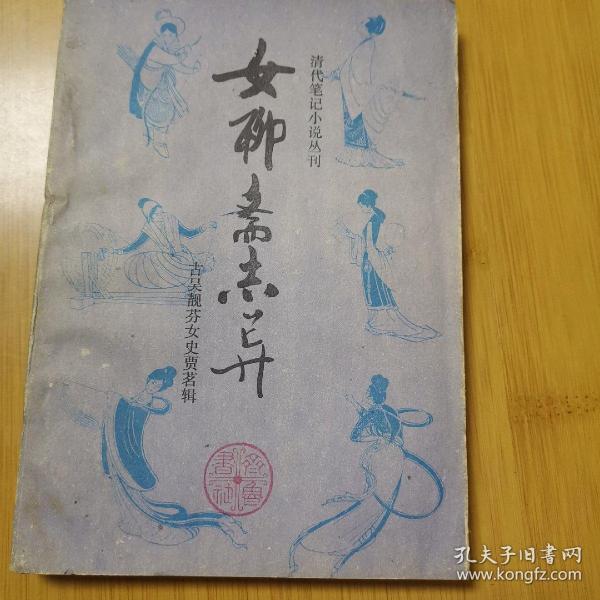 清代笔记小说丛刊
女聊斋志异
古吴靓芬女史贾茗辑
齐鲁書社
孔夫子旧書网
www.kongfz.com